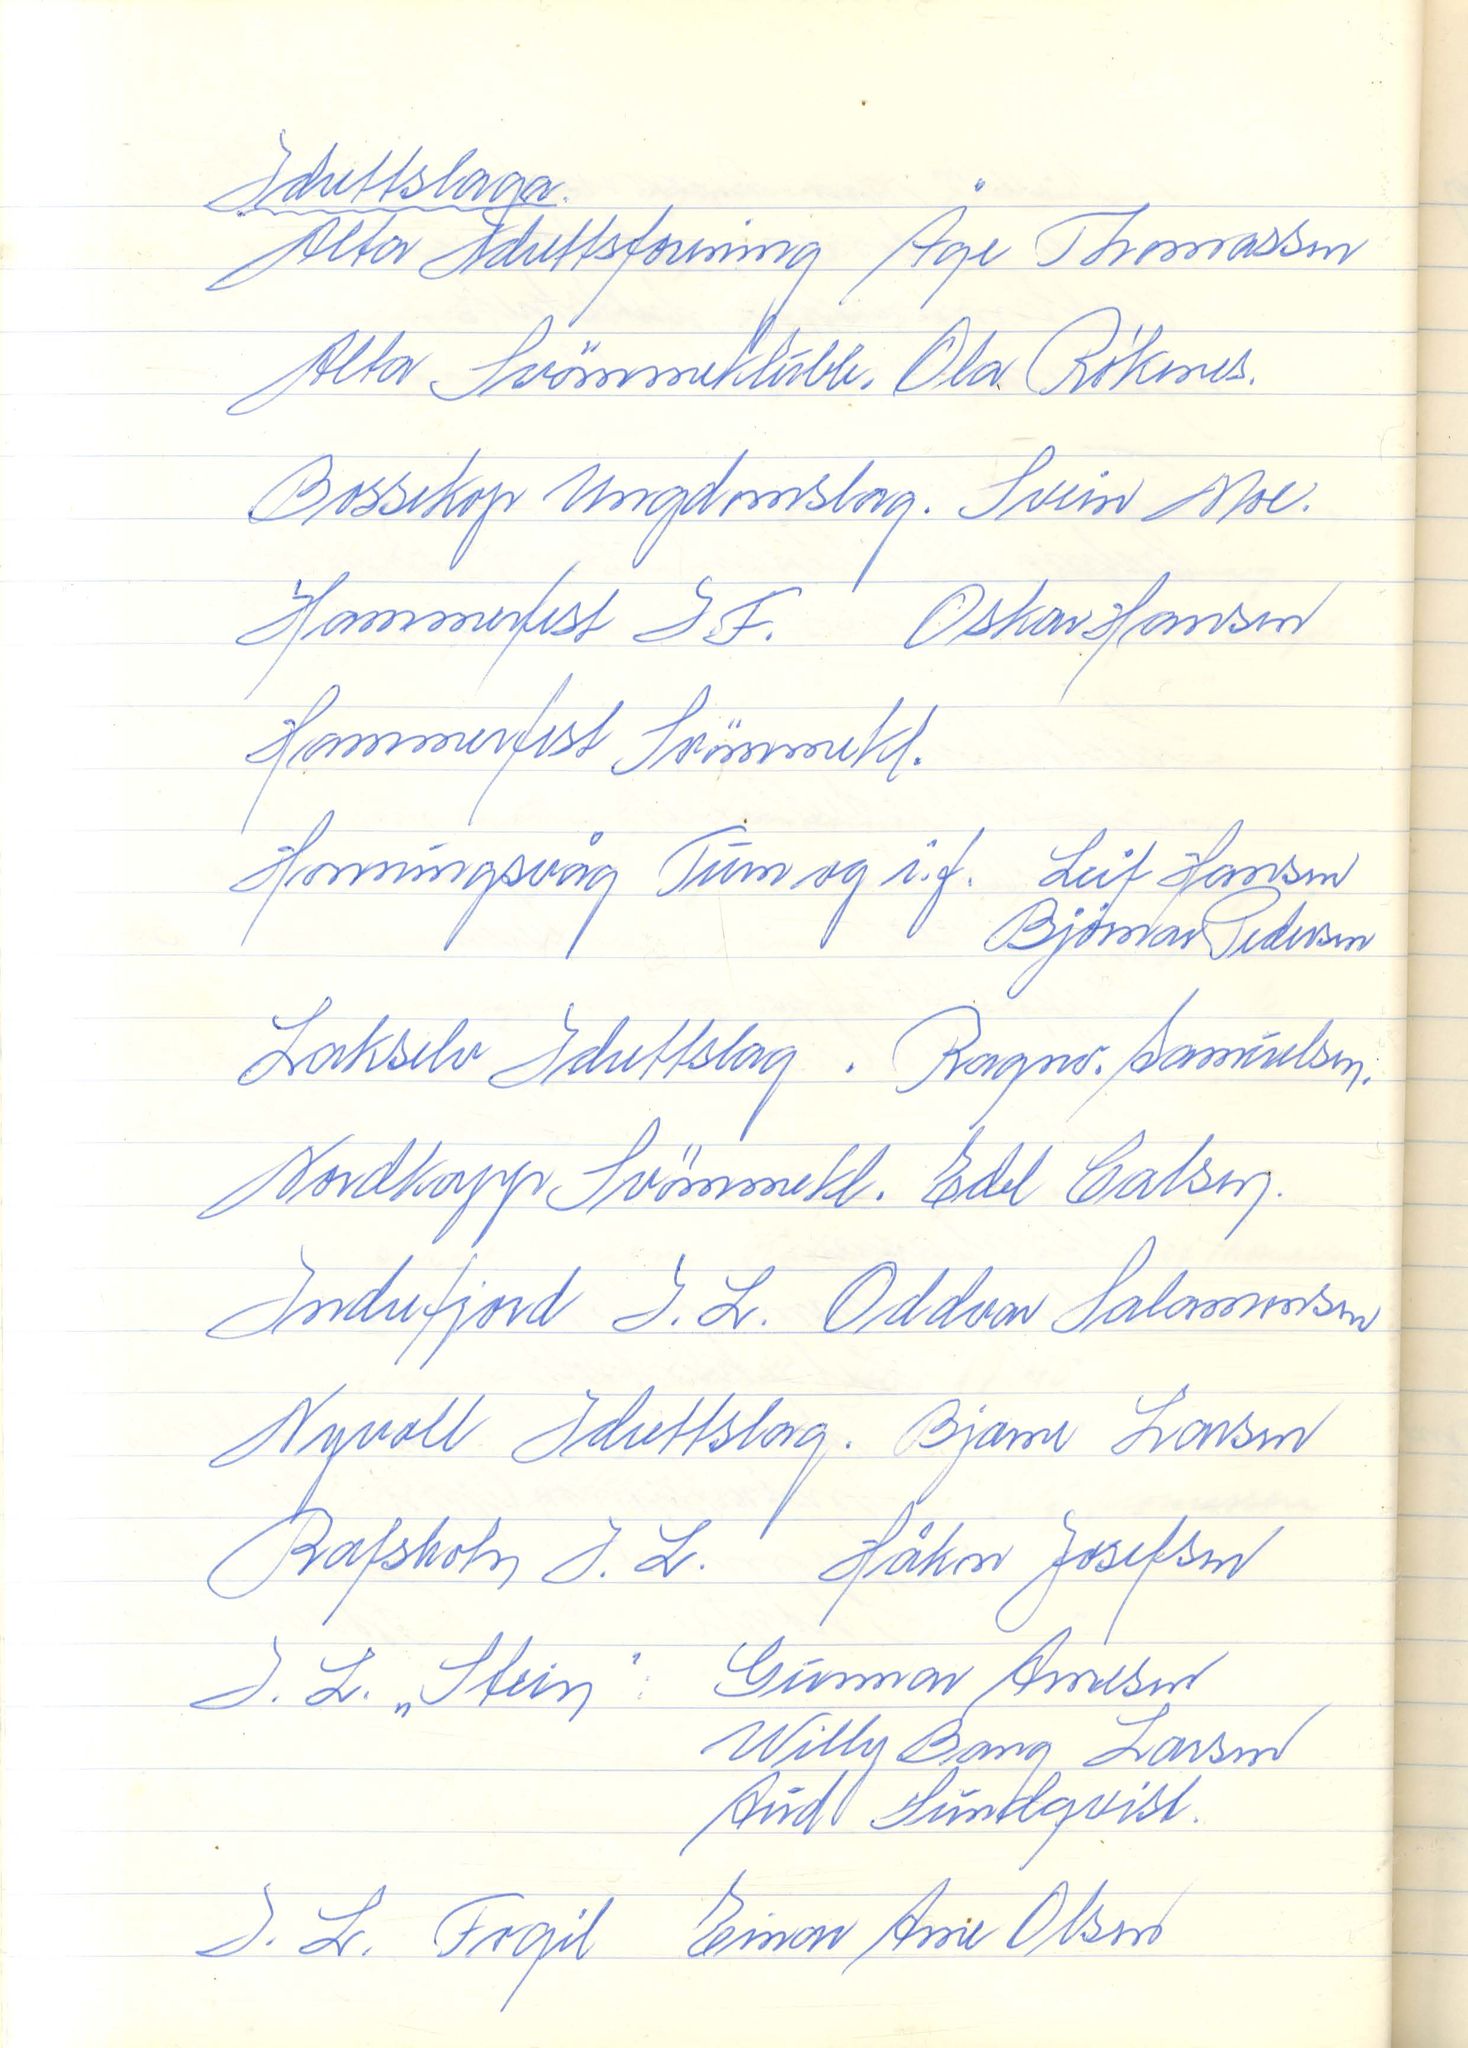 Idrettslaga.
Alta Idrettsforening Åge Thomassen
Alta Svömmeklubb. Ola Röknes.
Bossekop Ungdomslag. Svein Moe.
Hammerfest I.F. Oskar Hansen
Hammerfest Svömmekl.
Honningsvåg Turn og i.f. Leif Hansen
Björnar Pedersen
Lakselv Idrettslag. Ragnv. Samuelsen.
Nordkapp Svömmekl. Edel Calsen.
Indrefjord I.L. Oddvar Salamonsen
Nyvoll Idrettslag. Bjarne Larsen
Rafsbotn I.L. Håkon Josefsen
I.L. „Stein": Gunnar Arnesen
Willy Bang Larsen
Aud Sundqvist.
I.L. Frgil Einar Arne Olsen